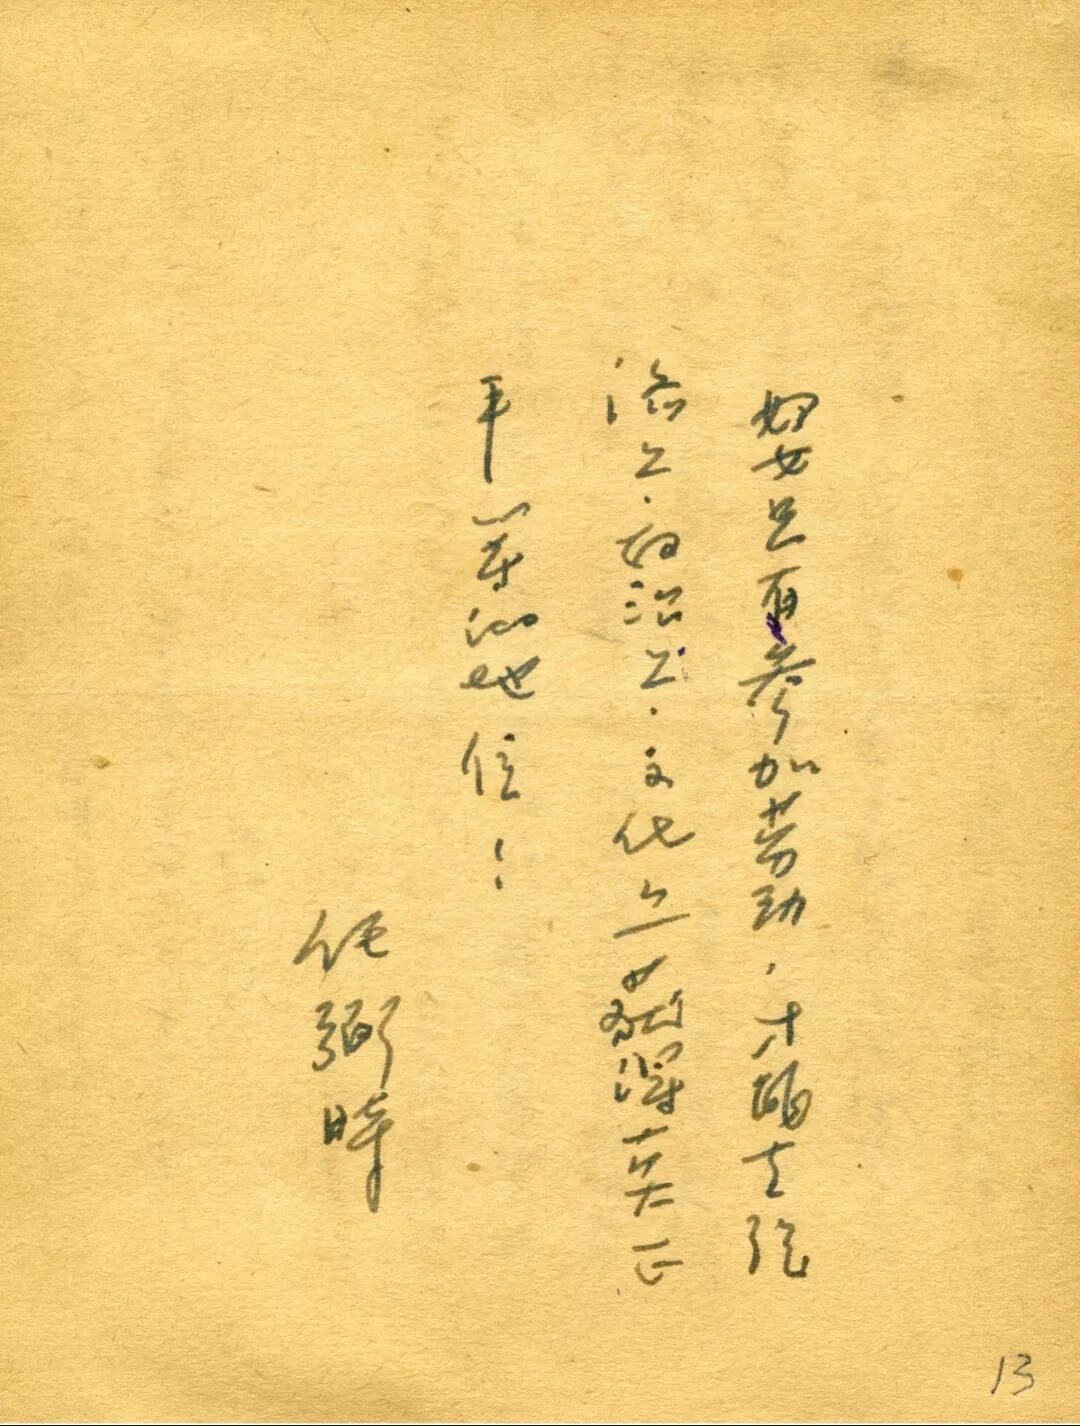 妇女只有参加劳动，才能在经
济上、政治上、文化上获得真正
平等的地位！
任弼时
13